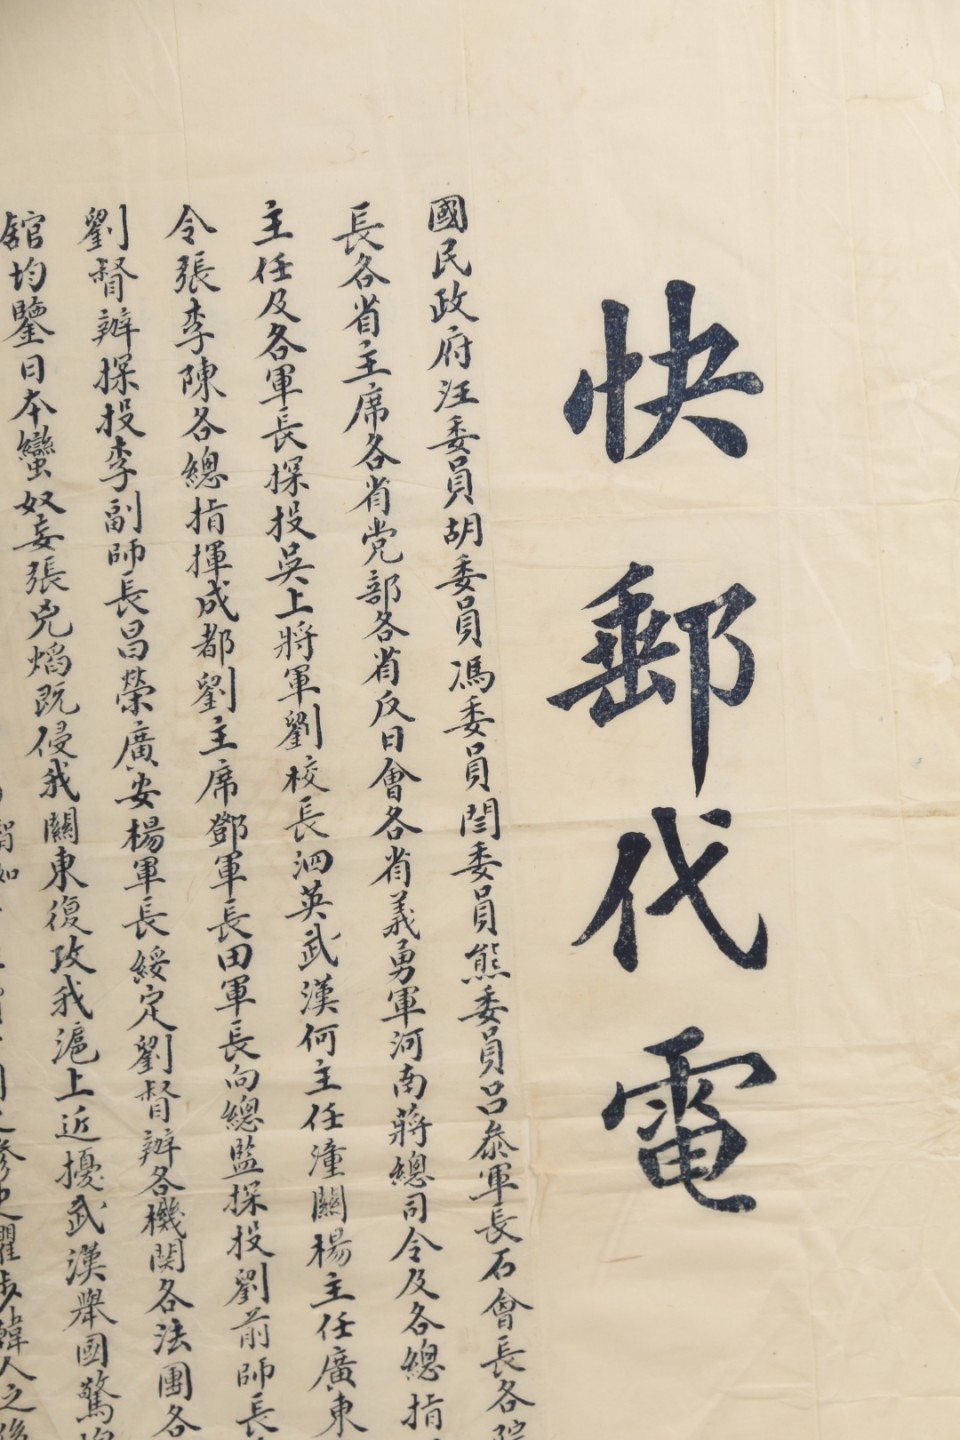 快郵代電
國民政府汪委員胡委員馮委員閆委員熊委員呂叅軍長石會長各院
長各省主席各省党部各省反日會各省義勇軍河南蔣總司令及各總指
主任及各軍長探投吳上將軍劉校長泗英武漢何主任潼關楊主任廣東
令張李陳各總指揮成都劉主席鄧軍長田軍長向總監探投劉前師長
劉督辦探投李副師長昌榮廣安楊軍長綏定劉督辦各機関各法團各
舘均鑒日本蠻奴妄張兇熖既侵我關東復攻我滬上近擾武漢舉國驚
韓人之